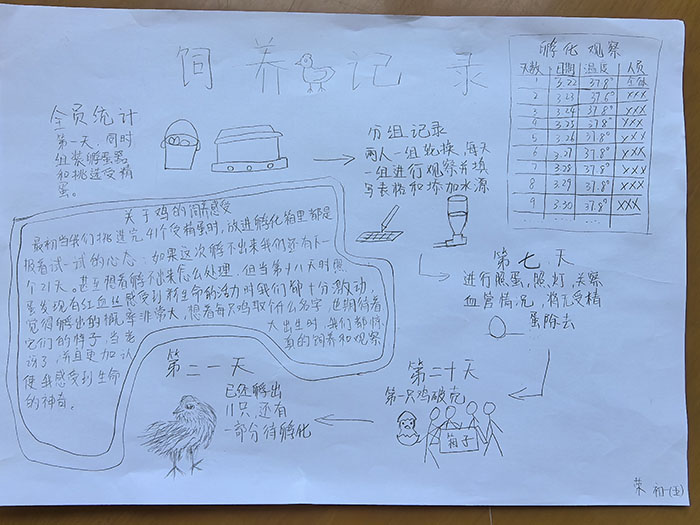 饲养记录
孵化观察
天数 日期 温度 人员
1 3.22 37.8° 全体
2 3.23 37.8° XXX
3 3.24 37.8° XXX
4 3.25 37.8° XXX
5 3.26 37.8° XXX
6 3.27 37.8° XXX
7 3.28 37.8° XXX
8 3.29 37.8° XXX
9 3.30 37.8° XXX
全员统计
第一天,同时
组装孵蛋器
和挑选受精
蛋。
分组记录
两人一组轮换,每天
一组进行观察并填
写表格和添加水源
第七天
进行照蛋,照灯,关察
血管情况,将无受精
蛋除去
第二十天
第一只鸡破壳
箱子
第二一天
已经孵出
11只,还有
一部分待孵化
关于鸡的饲养感受
最初当我们挑选完41个受精蛋时,放进孵化箱里都是
报着试一试的心态,如果这次孵不出来我们还有下一
个21天。甚至想着孵不出来怎么处理,但当第十八天时照
蛋发现有红血丝感受到新生命的活力时我们都十分激动,
觉得孵出的概率非常大,想着每只鸡取个什么名字,也期待着
它们的样子,当老大出生时,我们都惊
讶了,并且更加认真的饲养和观察
使我感受到生命
的神奇。